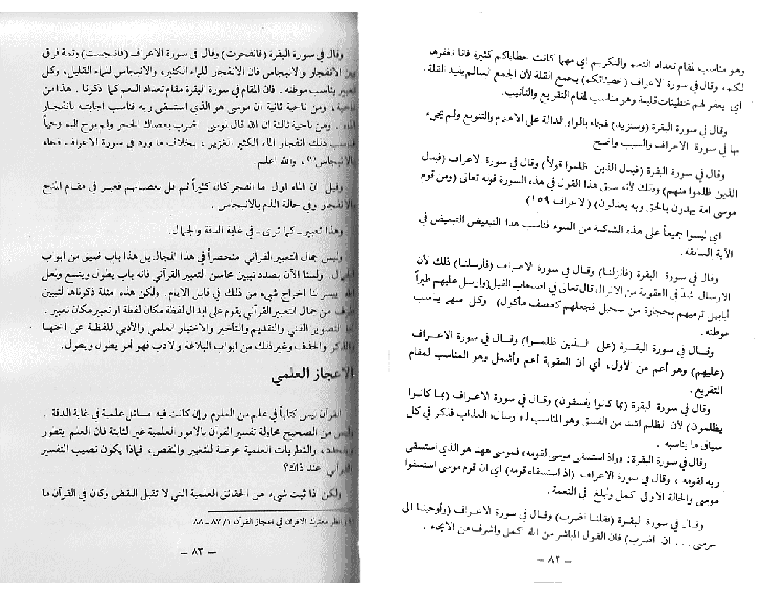 وهو مناسب لمقام تعداد النعم والتكريم اي مهما كانت خطاياكم كثيرة فانا نغفرها
لكم، وقال في سورة الاعراف (خطيئاتكم) بجمع القلة لأن الجمع السالم يفيد القلة .
اي يغفر لهم خطيئات قليلة وهو مناسب لمقام التقريع والتأنيب.
وقال في سورة البقرة (وسنزيد) فجاء بالواو الدالة على الاهتمام والتنويع ولم يجيء
بها في سورة الاعراف والسبب واضح
وقال في سورة البقرة (فبدل الذين ظلموا قولاً) وقال في سورة الاعراف (فبدل
الذين ظلموا منهم) وذلك لأنه سبق هذا القول في هذه السورة قوله تعالى (ومن قوم
موسى امة يهدون بالحق وبه يعدلون) (الاعراف ١٥٩)
اي ليسوا جميعاً على هذه الشاكلة من السوء فناسب هذا التبعيض التبعيض في
الآية السابقة .
وقال في سورة البقرة (فأنزلنا) وقال في سورة الاعراف (فأرسلنا) ذلك لأن
الارسال اشد في العقوبة من الانزال قال تعالى في اصحاب الفيل (وارسل عليهم طيراً
أبابيل ترميهم بحجارة من سجيل فجعلهم كعصف مأكول) وكل منهم يناسب
موطنه .
وقال في سورة البقرة (على الذين ظلموا) وقال في سورة الاعراف
(عليهم) وهو أعم من الأول، أي ان العقوبة أعم وأشمل وهو المناسب لمقام
التقريع .
وقال في سورة البقرة (بما كانوا يفسقون) وقال في سورة الاعراف (بما كانوا
يظلمون) لأن الظلم اشد من الفسق وهو المناسب العذاب فذكر في كل
سياق ما يناسبه .
وقال في سورة البقرة : (واذ استسقى موسى لقومه) فموسى هو الذي استسقى
ربه لقومه ، وقال في سورة الاعراف (اذ استسقاه قومه) اي ان قوم موسى استسقوا
موسى والحالة الاولى اكمل وابلغ في النعمة .
وقال في سورة البقرة (فقلنا اضرب) وقال في سورة الاعراف (وأوحينا الى
موسى ... ان اضرب) فان القول المباشر من الله اكمل واشرف من الايحاء .
– ٨٢ –
وقال في سورة البقرة (فانفجرت) وقال في سورة الاعراف (فانبجست) وثمة فرق
بين الانفجار والانبجاس فان الانفجار للماء الكثير، والانبجاس للماء القليل، وكل
تعبير يناسب موطنه . فان المقام في سورة البقرة مقام تعداد النعم كما ذكرنا . هذا من
ناحية ، ومن ناحية ثانية ان موسى هو الذي استسقى ربه فناسب اجابته بانفجار
الماء . ومن ناحية ثالثة ان الله قال لموسى اضرب بعصاك الحجر ولم يوح اليه وحياً
فناسب ذلك انفجار الماء الكثير الغزير ، بخلاف ما ورد في سورة الاعراف فجاء
بالانبجاس(١)، والله اعلم
وقيل ان الماء اول ما انفجر كان كثيراً ثم قل بعصيانهم فعبر في مقام المدح
بالانفجار وفي حالة الذم بالانبجاس .
وهذا تعبير – كما ترى – في غاية الدقة والجمال.
وليس جمال التعبير القرآني منحصراً في هذا المجال بل هذا باب ضيق من ابواب
الجمال . ولسنا الآن بصدد تبيين محاسن التعبير القرآني فانه باب يطول ويتسع ولعل
الله ييسر لنا اخراج شيء من ذلك في قابل الايام. ولكن هذه امثلة ذكرناها لتبيين
طرف من جمال التعبير القرآني يقوم على إبدال لفظة مكان لفظة او تعبير مكان تعبير .
اما التصوير الفني والتقديم والتأخير والاختيار العلمي والأدبي للفظة على اختها
والذكر والحذف وغير ذلك من ابواب البلاغة والأدب فهو امر يطول ويطول.
الاعجاز العلمي
القرآن ليس كتاباً في علم من العلوم وإن كانت فيه مسائل علمية في غاية الدقة .
وليس من الصحيح محاولة تفسير القرآن بالامور العلمية غير الثابتة فان العلم يتطور
ويتجدد، والنظريات العلمية عرضة للتغيير والنقض، فماذا يكون نصيب التفسير
القرآني عند ذاك؟
ولكن اذا ثبت شيء من الحقائق العلمية التي لا تقبل النقض وكان في القرآن ما
(١) انظر معترك الاقران في اعجاز القرآن ١/ ٨٧ – ٨٨
– ٨٣ –